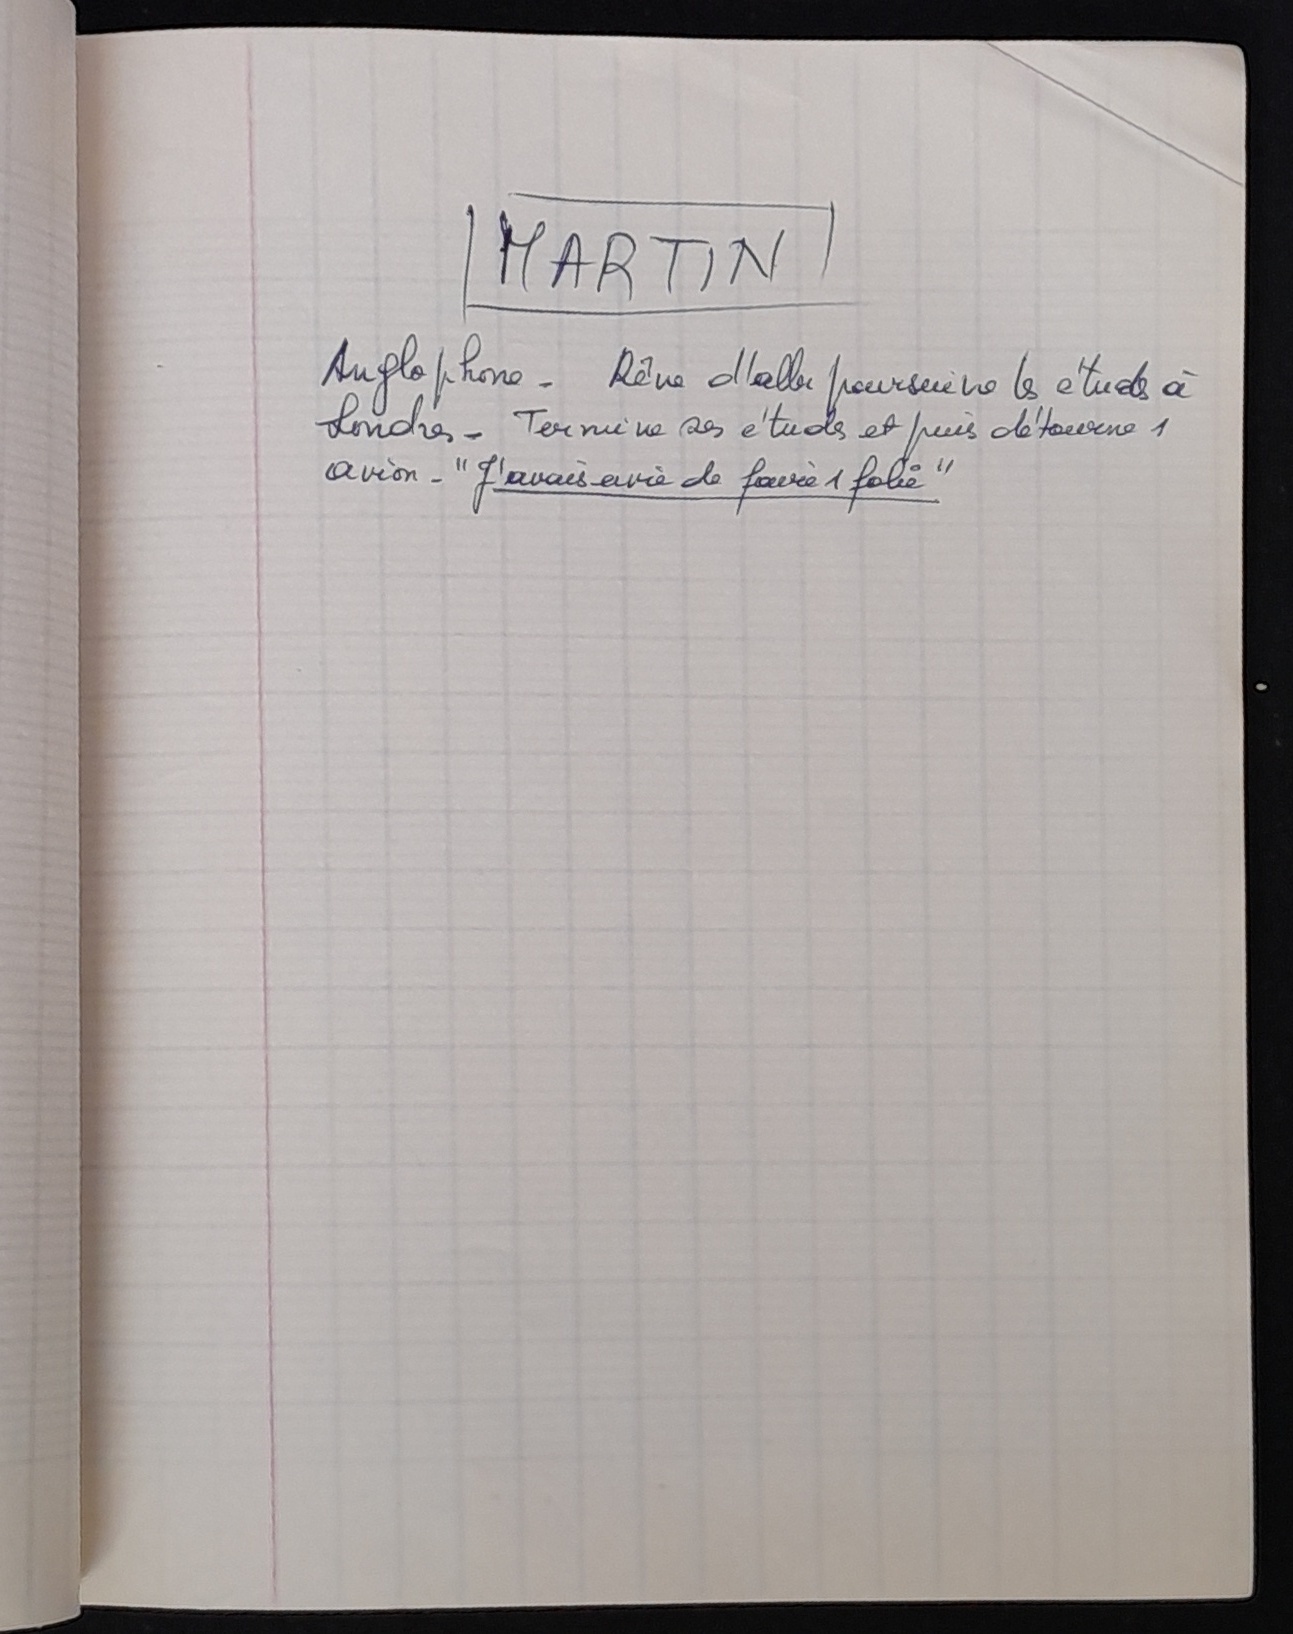 MARTIN
Anglophone - Rêve d'aller poursuivre les études à
Londres - Termine ses études et puis détourne 1
avion - "J'avais envie de faire 1 folie"